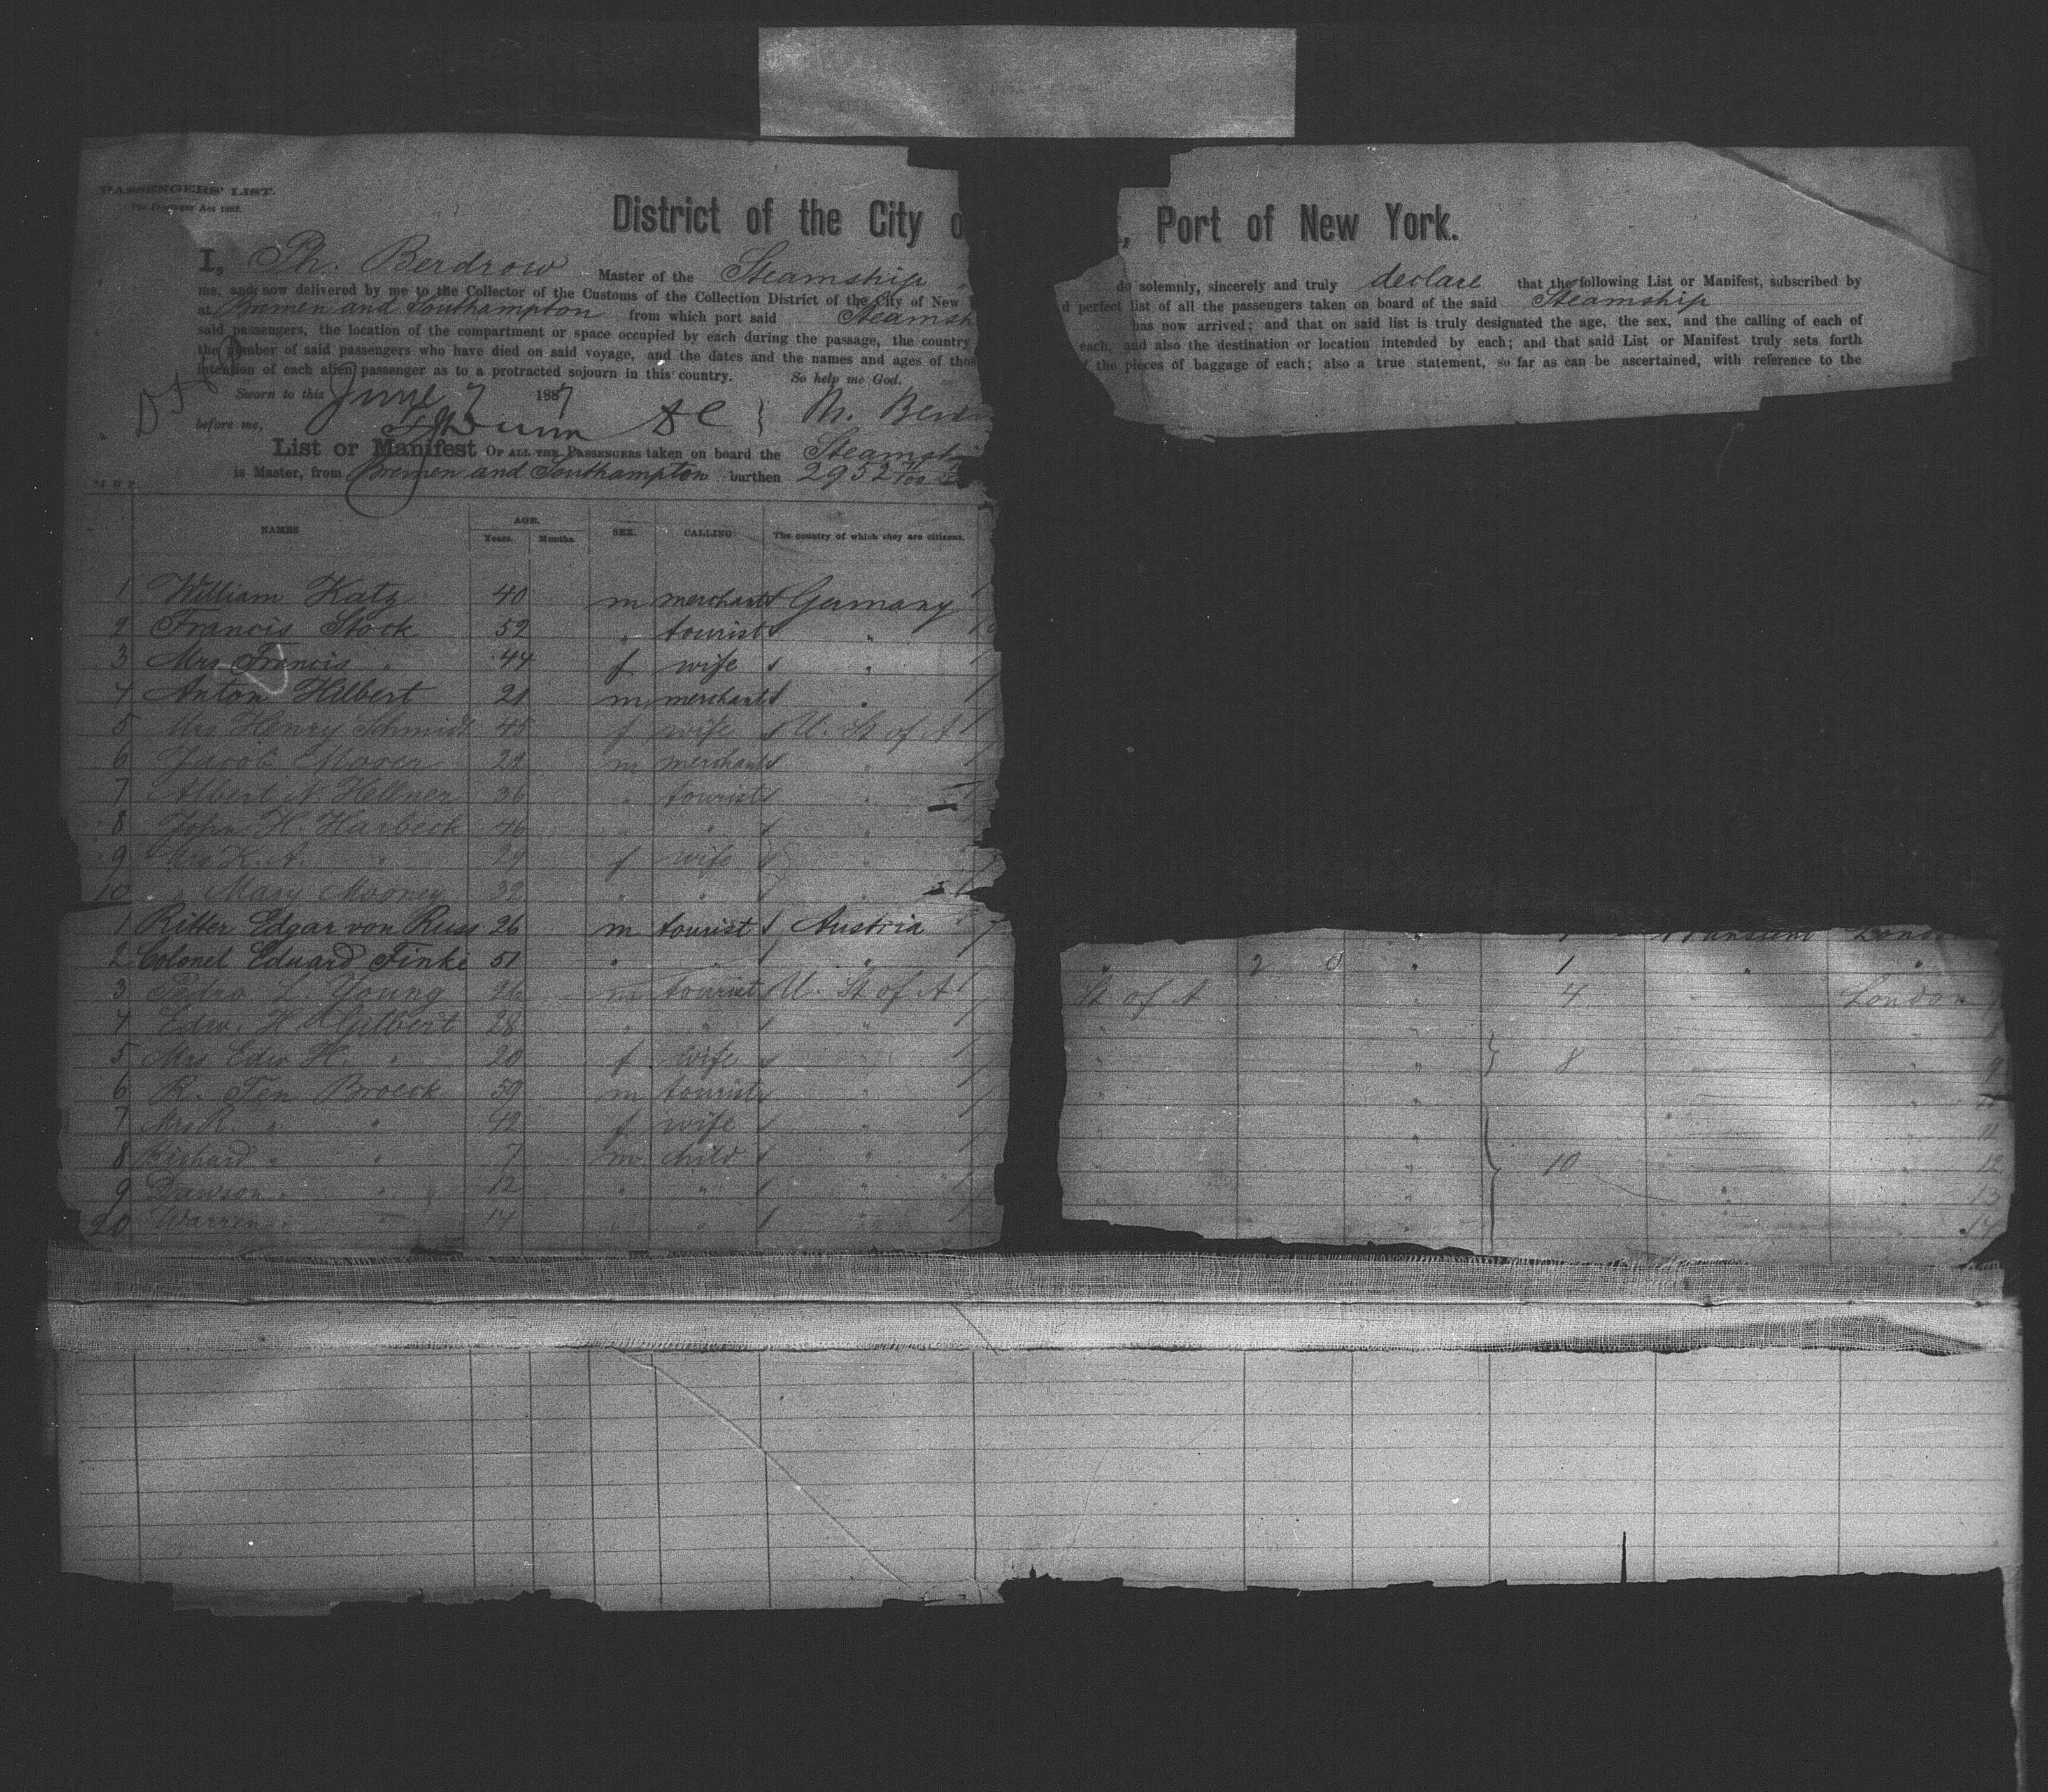 PASSENGERS' LIST.
The Passenger Act 1882.
District of the City o , Port of New York.
I, Ph. Berdrow Master of the Steamship do solemnly, sincerely and truly declare that the following List or Manifest, subscribed by
me, and now delivered by me to the Collector of the Customs of the Collection District of the City of New d perfect list of all the passengers taken on board of the said Steamship
at Bremen and Southampton from which port said Steamsh has now arrived; and that on said list is truly designated the age, the sex, and the calling of each of
said passengers, the location of the compartment or space occupied by each during the passage, the country each, and also the destination or location intended by each; and that said List or Manifest truly sets forth
the number of said passengers who have died on said voyage, and the dates and the names and ages of thos the pieces of baggage of each; also a true statement, so far as can be ascertained, with reference to the
intention of each alien passenger as to a protracted sojourn in this country. So help me God.
Sworn to this June 7 1887
before me, Ph. Berdr
List or Manifest OF ALL THE PASSENGERS taken on board the Steamshi
is Master, from Bremen and Southampton burthen 2952
NAMES AGE. Years. Months. SEX. CALLING The country of which they are citizens.
1 William Katz 40 m merchant Germany
2 Francis Stock 52 " tourist "
3 Mrs Francis " 44 f wife "
4 Anton Hilbert 21 m merchant "
5 Mrs Henry Schmidt 45 f wife U. St of A
6 Jacob 22 m merchant "
7 Albert N. Hellner 36 " tourist "
8 John H. Harbeck 46 " " "
9 Mrs K. A. " 29 f wife "
10 " Mary Mooney 32 " " "
1 Ritter Edgar von Russ 26 m tourist Austria
2 Colonel Eduard Finke 51 " " " 2 0 " 1 " "
3 Pedro L. Young 26 m tourist U. St of A St of A " 4 " London
4 Edw. H. Gilbert 28 " " " " "
5 Mrs Edw H. " 20 f wife " " " 8 9
6 R. Ten Broeck 59 m tourist " " "
7 Mrs R. " " 42 f wife " " " 11
8 Richard " " 7 m child " " " 10 12
9 Dawson " " 12 " " " " " 13
20 Warren " " 14 " " " " 14